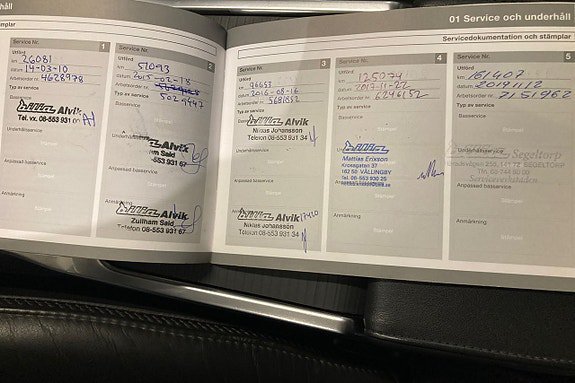 rhåll
01 Service och underhåll
plar
Servicedokumentation och stämplar
Service Nr. 1
Utförd
km 26081
datum 14-03-10
Arbetsorder nr. 4628978
Typ av service
Basservice
Bilia Alvik
Tel. vx. 08-553 931
Underhållsservice
Stämpel
Anpassad basservice
Stämpel
Anmärkning
Stämpel
Service Nr. 2
Utförd
km 51093
datum 2015-02-18
Arbetsorder nr.
5029447
Typ av service
Basservice
Bilia Alvik
Said
08-553 931 67
Anpassad basservice
Stämpel
Anmärkning
Bilia Alvik
Zullham Said
Telefon 08-553 931 67
Service Nr. 3
Utförd
km 96653
datum 2016-08-16
Arbetsorder nr. 5681552
Typ av service
Basservice
Bilia Alvik
Niklas Johansson
Telefon 08-553 931 34
Underhållsservice
Stämpel
Anpassad basservice
Stämpel
Anmärkning
Bilia Alvik
Niklas Johansson
Telefon 08-553 931 34
Service Nr. 4
Utförd
km 125074
datum 2017-11-22
Arbetsorder nr. 6246152
Typ av service
Basservice
Bilia
Mattias Erixson
Krossgatan 37
162 50 VÄLLINGBY
Tel. 08-553 930 25
Anpassad basservice
Stämpel
Anmärkning
Stämpel
Service Nr. 5
Utförd
km 161407
datum 20191112
Arbetsorder nr. 7151962
Typ av service
Basservice
Segeltorp
141 72 SEGELTORP
Underhållsservice
Anpassad basservice
Stämpel
Anmärkning
Stämpel